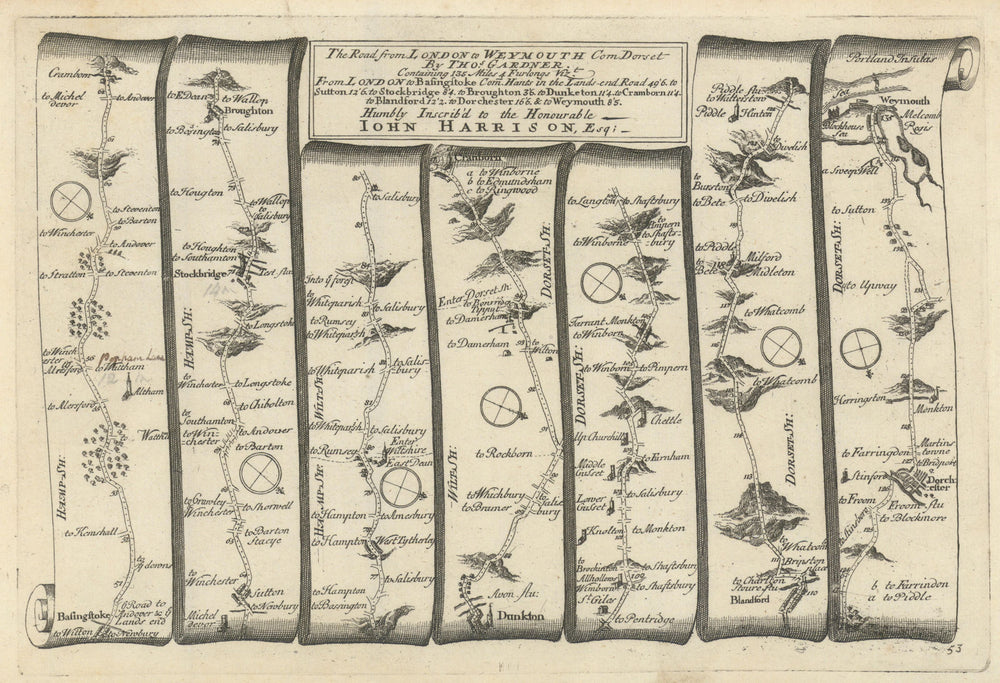 The Road from LONDON to WEYMOUTH Com. Dorset
By THO.s GARDNER.
Containing 135 Miles 4 Furlongs Viz.t
From LONDON to Basingstoke Com. Hants in the Lands end Road 49'6. to
Sutton 12'6. to Stockbridge 8'4. to Broughton 3'6. to Dunketon 11'4. to Cramborn 11'4.
to Blandford 12'2. to Dorchester 16'6. & to Weymouth 8'5.
Humbly Inscrib'd to the Honourable
IOHN HARRISON, Esq;
Cramborn
to Michel
devor
to Andover
to Steventon
to Barton
to Winchester
to Andover
to Stratton
to Steventon
to Winch
ester or
Alresford
Popham Lane
to Whitham
Altham
to Alersford
HAMP-SH:
to Kemshall
to ye downs
Basingstoke
ye Road to
Andover & ye
Lands end
to Wilton
to Newbury
to E Dean
to Wallop
Broughton
to Bosington
to Salisbury
to Hougton
to Wallop
to Salisbury
to Houghton
to Southamton
Stockbridge
Test flu
to Longstoke
HAMP-SH:
to Winchester
to Longstoke
to Chibolton
to Southamton
to Win-
chester
to Andover
to Barton
to Crawley
to Winchester
to Shorwell
to Barton
Staeye
to Winchester
Sutton
Michel
devor
to Newbury
to Salisbury
Into ye forest
to Whiteparish
to Salisbury
to Rumsey
to Whiteparish
to Whiteparish
to Salis-
bury
WILT-SH:
to Whiteparish
to Salisbury
Enter
Wiltshire
to Rumsey
East Dean
HAMP-SH:
to Hampton
to Amesbury
to Hampton
West Tytherley
to Salisbury
to Hampton
to Bassington
Cranborn
a to Winborne
b to Edmundsham
c to Ringwood
DORSET-SH:
Enter Dorset Sh.
to Damerham
to Damerham
to Wilton
WILT-SH:
to Rockborn
to Whichbury
to Bramer
to Salis
bury
Avon flu:
Dunkton
to Langton
to Shaftsbury
to Pimpern
to Shafts-
bury
to Winborne
Tarrant Monkton
to Winborn
to Winborn
to Pimpern
DORSET-SH:
Chettle
Up Churchill
Middle
Gusset
to Farnham
Lower
Gusset
to Salisbury
Knolton
to Monkton
to Shaftsbury
Allhollows
Wimborn
to Shaftsbury
St Giles
to Pentridge
Piddle flu
to Walterstow
Piddle
Hinton
to Dwelish
to Burston
to Bete
to Dwelish
to Piddle
to Bele
Milford
Midleton
to Whatcomb
to Whatcomb
DORSET-SH:
to Whatcomb
Brijnston
to Charlton
Stoure flu
Blandford
Portland Insulas
Sea
Weymouth
Blockhouse
Sea
Melcomb
Regis
a Sweep Well
to Sutton
DORSET-SH:
to Upway
Herrington
Monkton
Martins
towne
to Farringdon
to Bridport
Stinford
Dorch-
ester
to Froom
Froom flu
to Blockmore
b. to Farrindon
a to Piddle
53